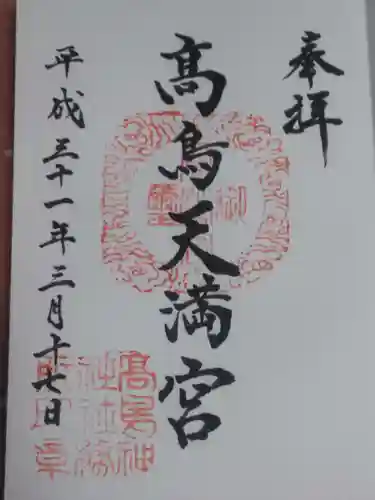 奉拝
髙鳥天満宮
平成三十一年三月十七日
髙鳥神
社社務
所之章